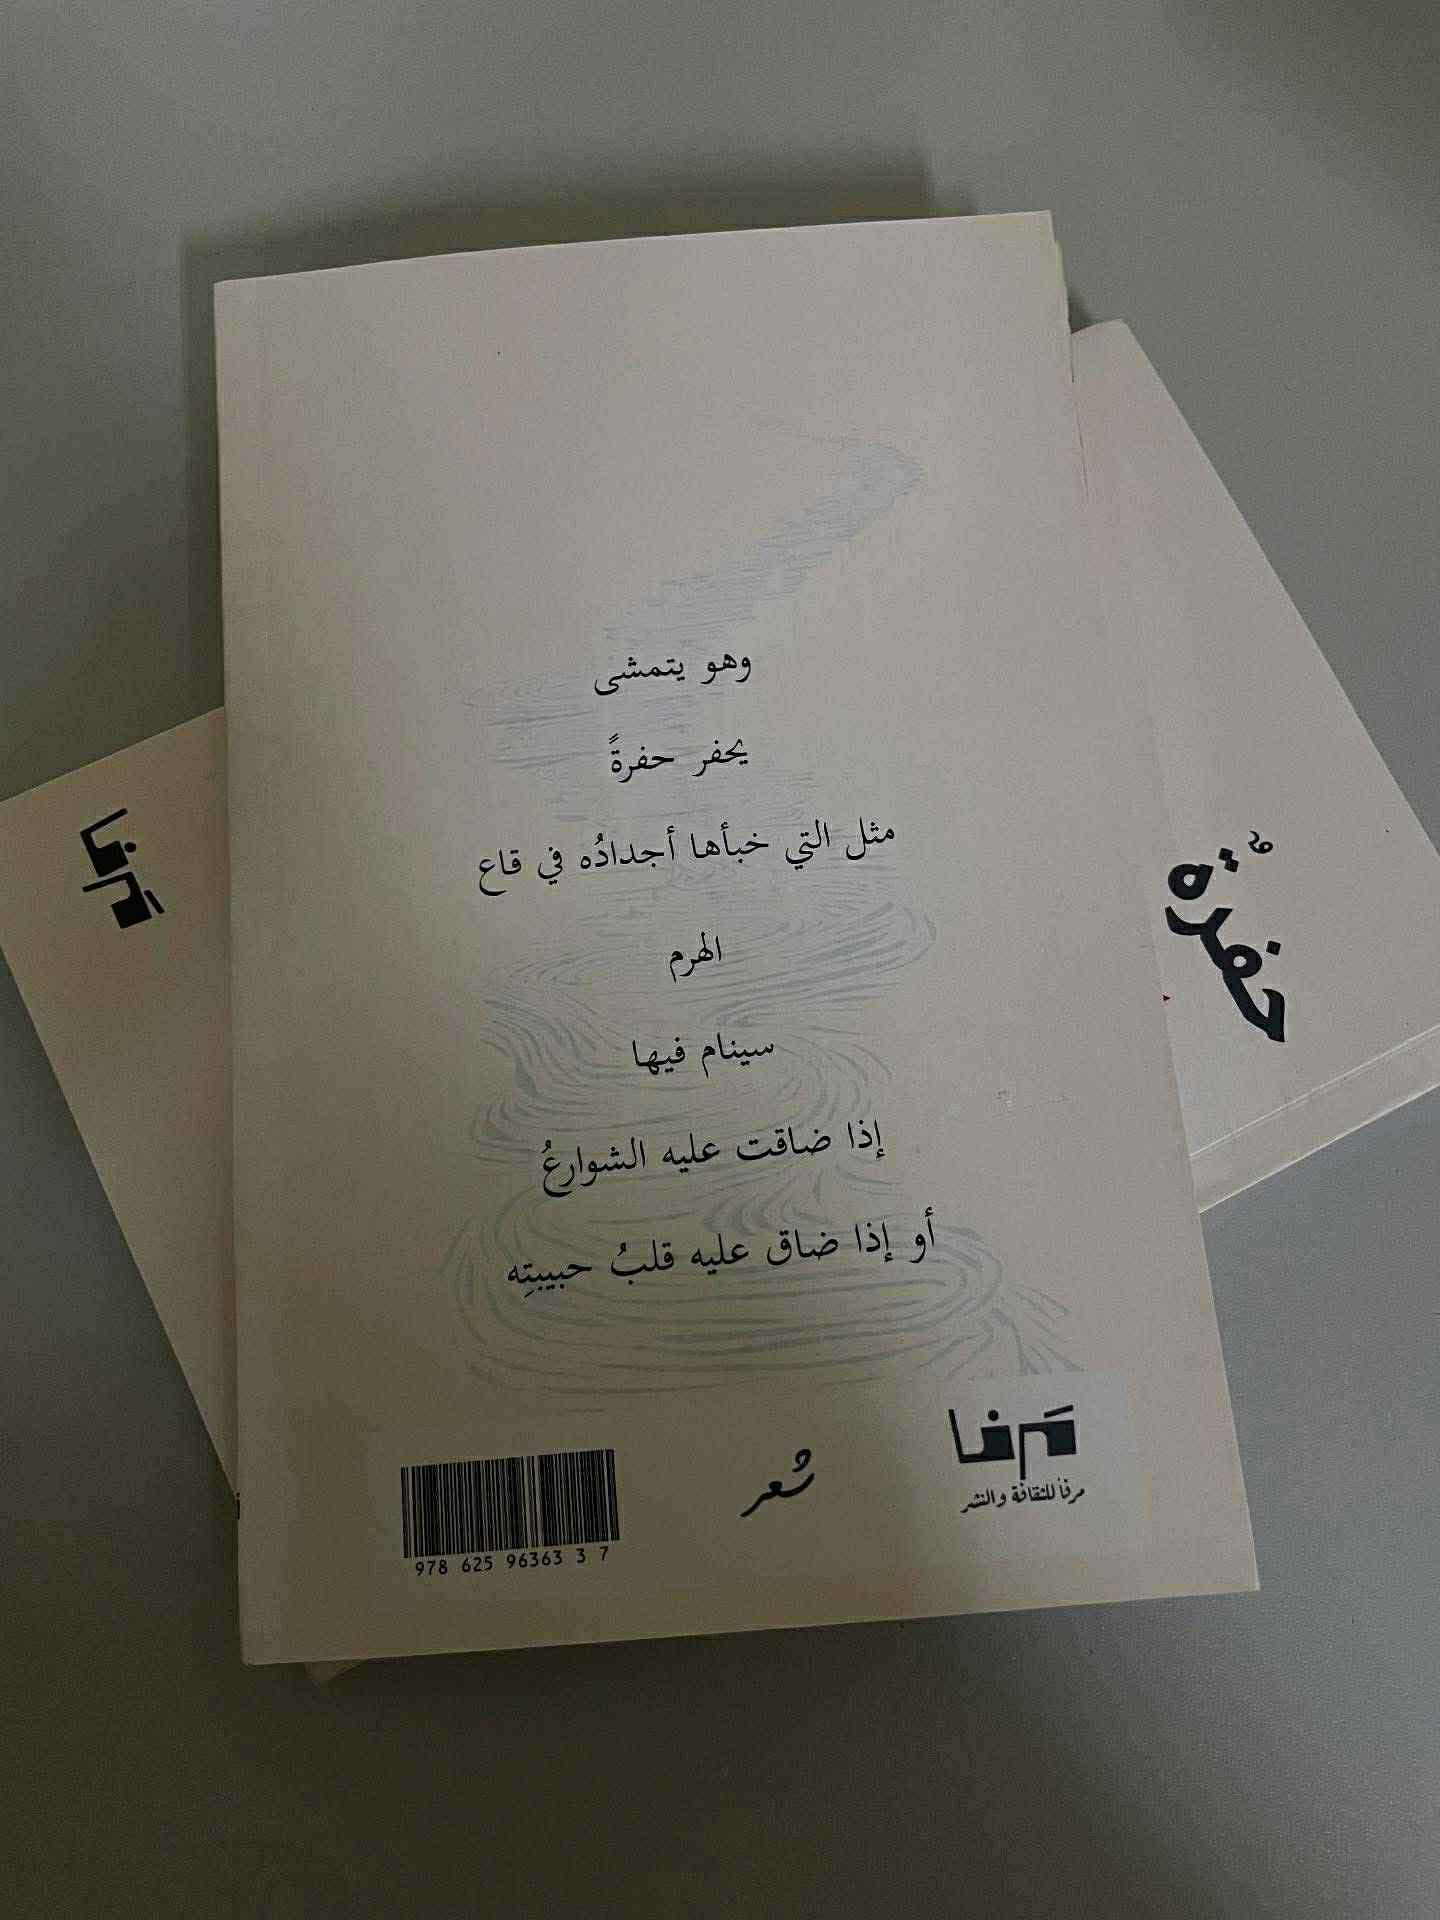 وهو يتمشى
يحفر حفرةً
مثل التي خبأها أجدادُه في قاع
الهرم
سينام فيها
إذا ضاقت عليه الشوارعُ
أو إذا ضاق عليه قلبُ حبيبتِه
مَرفأ
مرفأ للثقافة والنشر
شعر
978 625 96363 3 7
حفرةٌ
مَرفأ